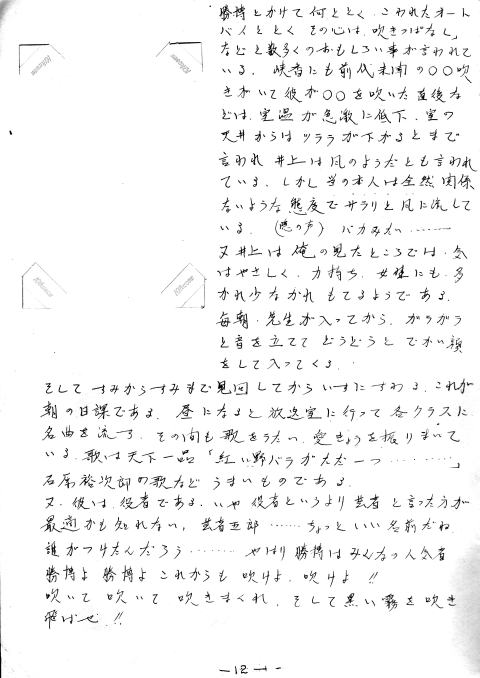 勝博とかけて何ととく、こわれたオート
バイととく その心は、吹きっぱなし」
などと数多くのおもしろい事が言われて
いる。 峡音にも前代未聞の〇〇吹
きがいて彼が〇〇を吹いた直後な
どは、室温が急激に低下、室の
天井からはツララが下がるとまで
言われ 井上は風のようだとも言われ
ている。しかし当の本人は全然関係
ないような態度でサラリと風に流して
いる。 (陰の声) バカみたい………
又井上は俺の見たところでは、気
はやさしく、力持ち、女様にも、多
かれ少なかれ もてるようである。
毎朝、先生が入ってから、ガラガラ
と音を立てて どうどうと でかい顔
をして入ってくる。
そして すみからすみまで見回してからいすにすわる。これが
朝の日課である。 昼になると放送室に行って各クラスに
名曲を流す。その間も歌をうたい、愛きょうを振りまいて
いる。歌は天下一品「紅い野バラがただ一つ………」
石原裕次郎の歌など うまいものである。
又、彼は、役者である。いや 役者というより芸者 と言った方が
最適かも知れない。芸者五郎……ちょっといい名前だね
誰がつけたんだろう……… やはり 勝博はみんなの人気者
勝博よ 勝博よ これからも 吹けよ、吹けよ !!
吹いて 吹いて 吹きまくれ、そして黒い霧を吹き
飛ばせ !!
—12—